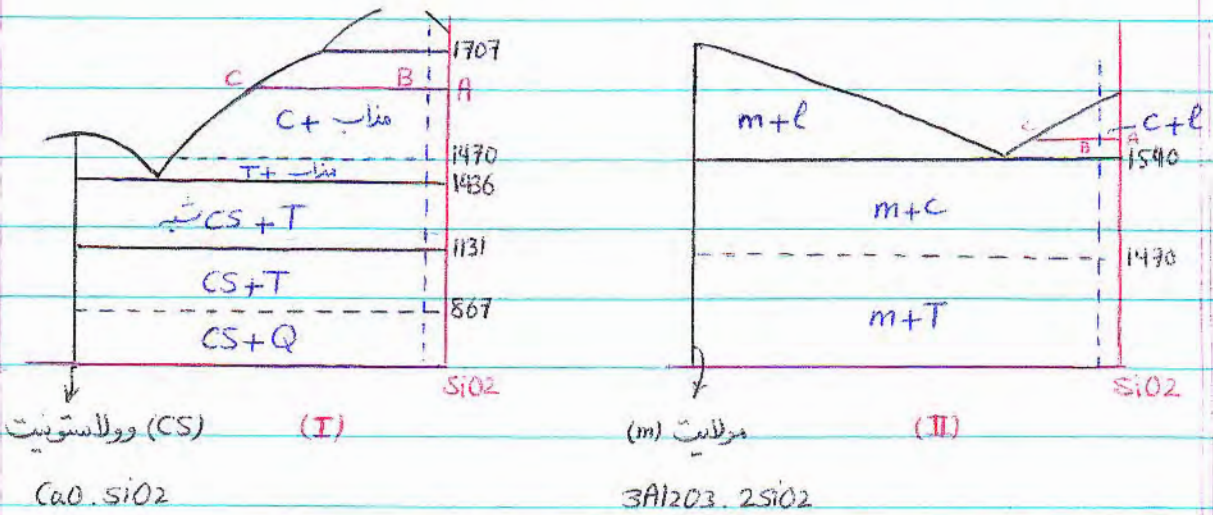 1707
C B A
C + مذاب
1470
T + مذاب
1436
شبه CS + T
1131
CS + T
867
CS + Q
SiO2
وولاستونیت (CS)
(I)
CaO.SiO2
m+l
C+l
C B A
1540
m+C
1470
m+T
SiO2
مولایت (m)
(II)
3Al2O3.2SiO2